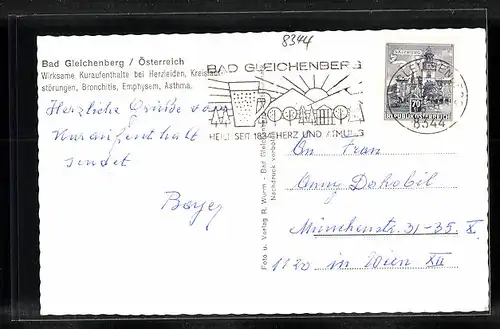 8344
Bad Gleichenberg / Österreich
Wirksame Kuraufenthalte bei Herzleiden, Kreislauf-
störungen, Bronchitis, Emphysem, Asthma.
BAD GLEICHENBERG
HEILT SEIT 1834 HERZ UND ATMUNG
SALZBURG
70
REPUBLIK ÖSTERREICH
8344
Herzliche Grüße vom
Kuraufenthalt
sendet
Bayer
Foto u. Verlag R. Wurm - Bad Gleichenberg
Nachdruck verboten
An Frau
Anny
Münchenstr. 31-35. X.
1120 in Wien XII